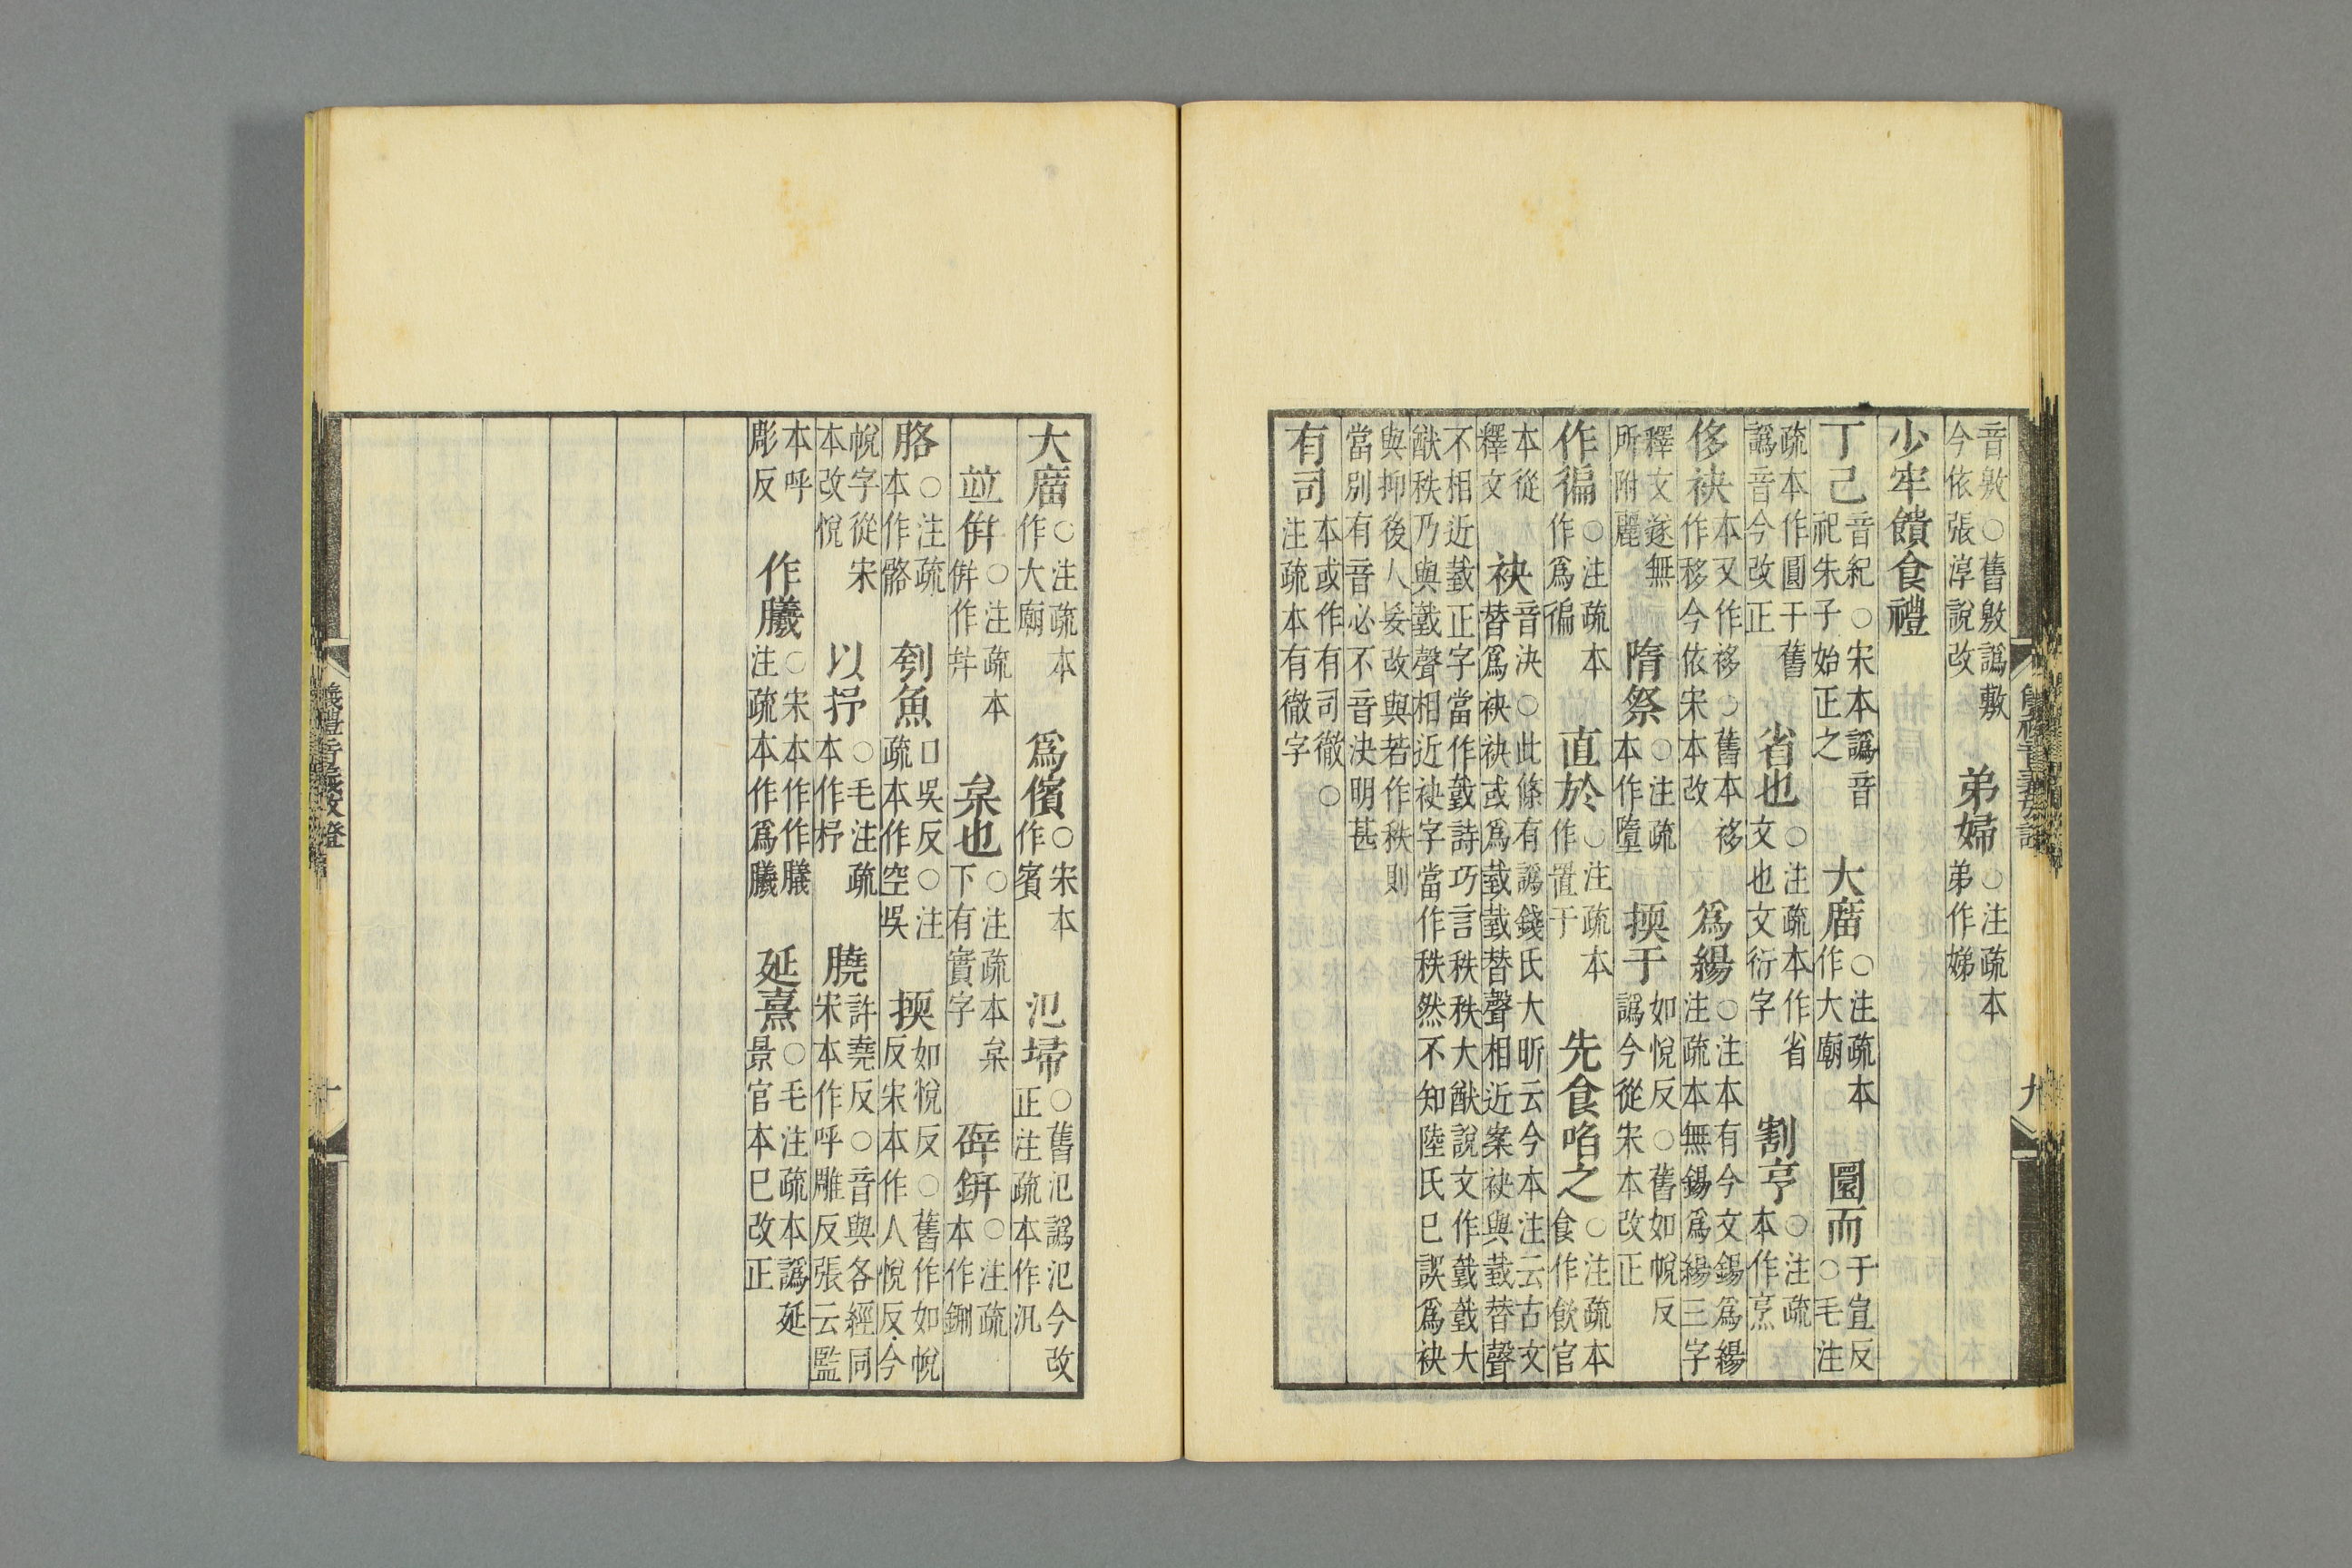 音敫○舊敫譌敷今依張淳說改　弟婦○注疏本弟作娣
少牢饋食禮
丁己音紀○宋本譌音祀朱子始正之　大廟○注疏本作大廟　圜而于宜反○毛注
疏本作圓干舊譌音今改正　省也○注疏本作省文也文衍字　割亨○注疏本作烹
侈袂本又作移○舊本袳作移今依宋本改　爲緆○注本有今文錫爲緆注疏本無錫爲緆三字
釋文遂無所附麗　隋祭○注疏本作墮　擩于如悅反○舊如帨反譌今從宋本改正
作徧○注疏本作爲徧　直於○注疏本作置于　先食啗之○注疏本食作飲官
本從釋文　袂音決○此條有譌錢氏大昕云今本注云古文替爲袂袂或爲臷臷替聲相近案袂與臷替聲
不相近臷正字當作𢧜詩巧言秩秩大猷說文作𢧜𢧜大猷秩乃與𢧜聲相近袂字當作秩然不知陸氏已誤爲袂
與抑後人妄改與若作秩則當別有音必不音決明甚
有司本或作有司徹○注疏本有徹字
儀禮音義攷證
九
大廟○注疏本作大廟　爲儐○宋本作賓　氾埽○舊氾譌汜今改正注疏本作汎
竝併○注疏本併作幷　枲也○注疏本枲下有實字　硎鉶○注疏本作鉶
胳○注疏本作骼　刳魚口吳反○注疏本作空吳　擩如悅反○舊作如帨反宋本作人悅反今
帨字從宋本改悅　以抒○毛注疏本作杼　膮許堯反○音與各經同宋本作呼雕反張云監
本呼彫反　作臐○宋本作作膷注疏本作爲臐　延熹○毛注疏本譌延景官本已改正
儀禮音義攷證
十